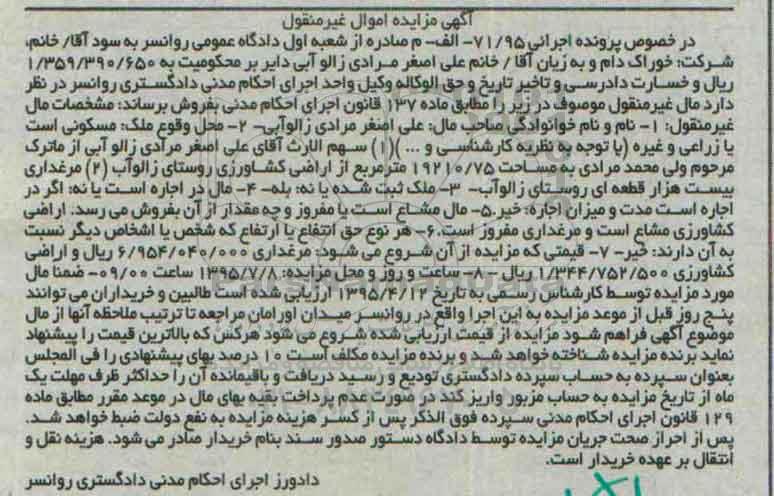 آگهی مزایده اموال غیرمنقول
در خصوص پرونده اجرائی ۷۱/۹۵- الف- م صادره از شعبه اول دادگاه عمومی روانسر به سود آقا/ خانم،
شرکت: خوراک دام و به زیان آقا / خانم علی اصغر مرادی زالو آبی دایر بر محکومیت به ۱/۳۵۹/۳۹۰/۶۵۰
ریال و خسارت دادرسی و تاخیر تاریخ و حق الوکاله وکیل واحد اجرای احکام مدنی دادگستری روانسر در نظر
دارد مال غیرمنقول موصوف در زیر را مطابق ماده ۱۳۷ قانون اجرای احکام مدنی بفروش برساند: مشخصات مال
غیرمنقول: ۱- نام و نام خوانوادگی صاحب مال: علی اصغر مرادی زالوآبی- ۲- محل وقوع ملک: مسکونی است
یا زراعی و غیره (با توجه به نظریه کارشناسی و ... )(۱) سهم الارث آقای علی اصغر مرادی زالو آبی از ماترک
مرحوم ولی محمد مرادی به مساحت ۱۹۲۱۰/۷۵ مترمربع از اراضی کشاورزی روستای زالوآب (۲) مرغداری
بیست هزار قطعه ای روستای زالوآب- ۳- ملک ثبت شده یا نه: بله- ۴- مال در اجاره است یا نه: اگر در
اجاره است مدت و میزان اجاره: خیر.۵- مال مشاع است یا مفروز و چه مقدار از آن بفروش می رسد. اراضی
کشاورزی مشاع است و مرغداری مفروز است.۶- هر نوع حق انتفاع یا ارتفاع که شخص یا اشخاص دیگر نسبت
به آن دارند: خیر- ۷- قیمتی که مزایده از آن شروع می شود: مرغداری ۶/۹۵۴/۰۴۰/۰۰۰ ریال و اراضی
کشاورزی ۱/۳۴۴/۷۵۲/۵۰۰ ریال - ۸- ساعت و روز و محل مزایده: ۱۳۹۵/۷/۸ ساعت ۰۹/۰۰- ضمنا مال
مورد مزایده توسط کارشناس رسمی به تاریخ ۱۳۹۵/۴/۱۲ ارزیابی شده است طالبین و خریداران می توانند
پنج روز قبل از موعد مزایده به این اجرا واقع در روانسر میدان اورامان مراجعه تا ترتیب ملاحظه آنها از مال
موضوع آگهی فراهم شود مزایده از قیمت ارزیابی شده شروع می شود هرکس که بالاترین قیمت را پیشنهاد
نماید برنده مزایده شناخته خواهد شد و برنده مزایده مکلف است ۱۰ درصد بهای پیشنهادی را فی المجلس
بعنوان سپرده به حساب سپرده دادگستری تودیع و رسید دریافت و باقیمانده آن را حداکثر ظرف مهلت یک
ماه از تاریخ مزایده به حساب مزبور واریز کند در صورت عدم پرداخت بقیه بهای مال در موعد مقرر مطابق ماده
۱۲۹ قانون اجرای احکام مدنی سپرده فوق الذکر پس از کسر هزینه مزایده به نفع دولت ضبط خواهد شد.
پس از احراز صحت جریان مزایده توسط دادگاه دستور صدور سند بنام خریدار صادر می شود. هزینه نقل و
انتقال بر عهده خریدار است.
دادورز اجرای احکام مدنی دادگستری روانسر